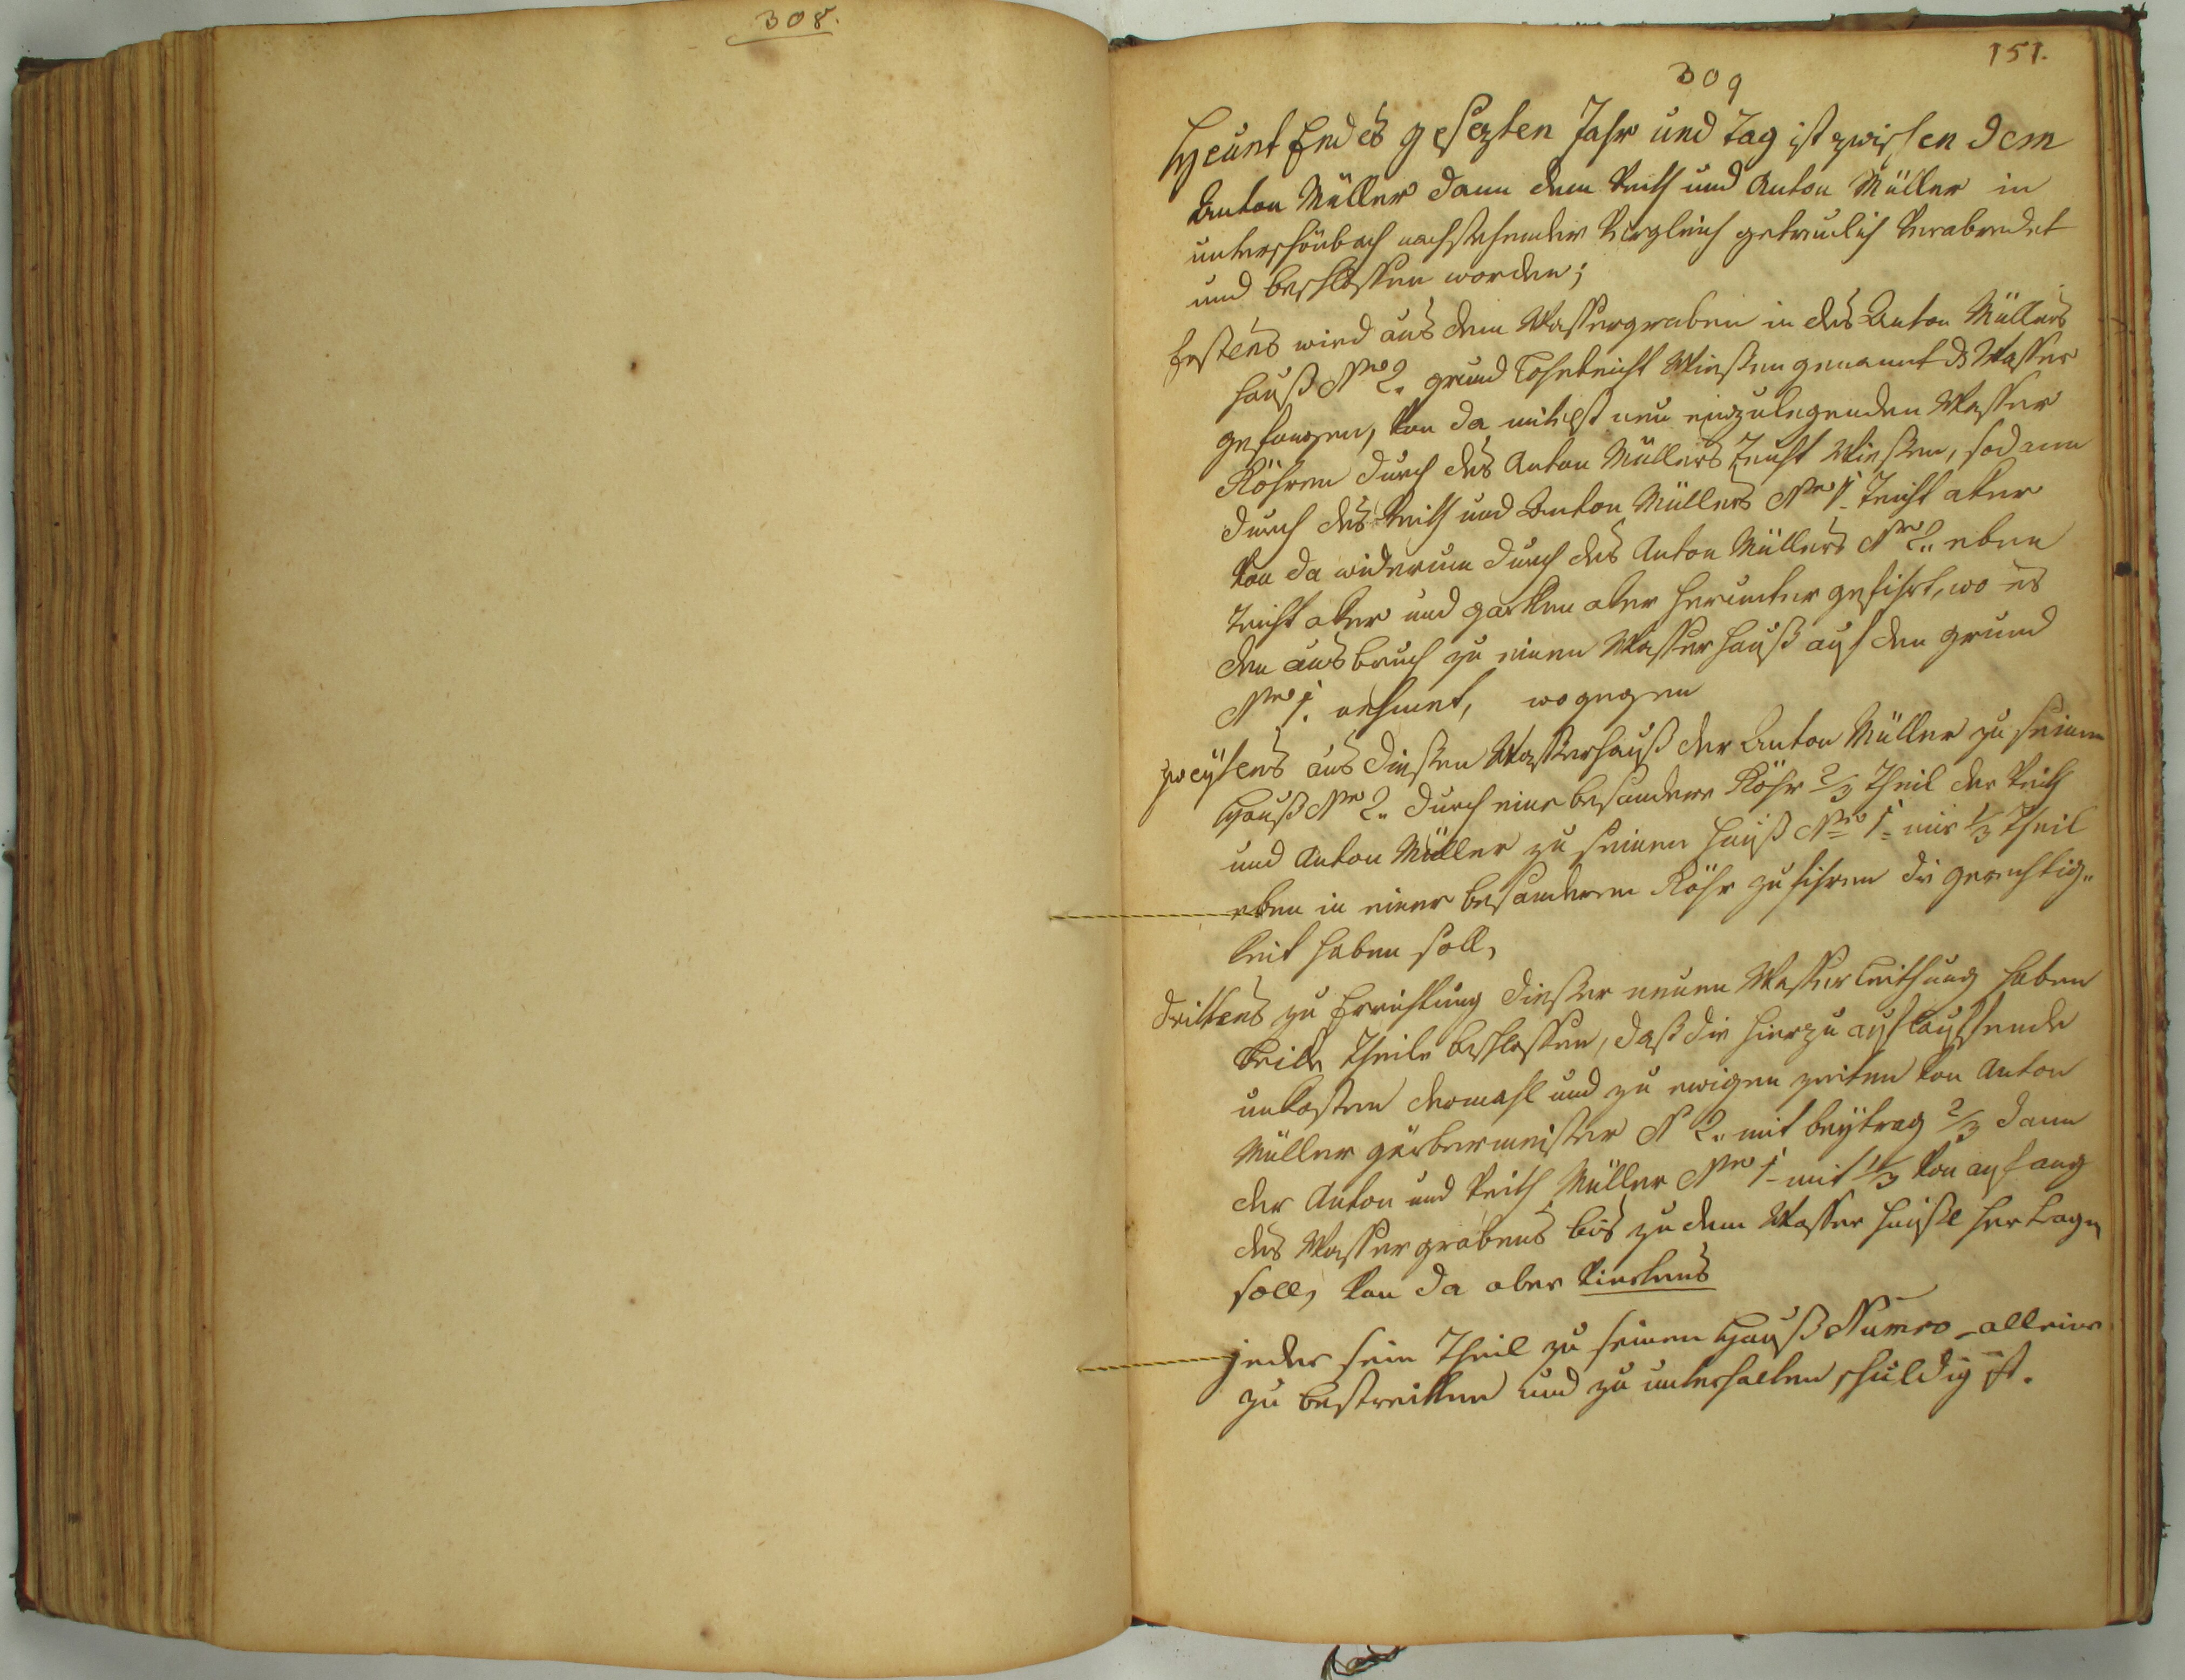 308.
151.
309
Heunt Endes gesezten Jahr und Tag ist zwischen dem
Anton Müller dann dem Veith und Anton Müller in
unterschönbach nachstehender Vergleich getreulich verabredet
und beschlossen worden;
Erstens wird aus dem Wassergraben in des Anton Müllers
Hauß Nro 2. grund Wießen genannt ds Wasser
gefangen, von da mitelst neu einzulegenden Wasser
Röhren durch des Anton Müllers Teicht Wießen, sodann
durch des Veith und Anton Müllers Nro 1. Teicht aker
von da widerum durch des Anton Müllers Nro 2. eben
Teicht aker und garten aker herunter gefihrt, wo es
den ausbruch zu einen Wasserhauß auf den grund
Nro 1. nehmet, wogegen
zweytens aus dießen Wasserhauß der Anton Müller zu seinen
Hauß Nro 2. durch eine besondere Röhr 2/3 Theil der Veith
und Anton Müller zu seinen Hauß Nro 1. nur 1/3 Theil
eben in einer besonderen Röhr zu fihren die gerechtig„
keit haben soll,
drittens zu Errichtung dießer neuen Wasser Leithung haben
beide Theile beschlossen, daß die hierzu auflauffende
unkosten dermahl und zu ewigen zeiten von Anton
Müller gärbermeister N 2. mit beytrag 2/3 dann
der Anton und Veith Müller Nro 1. mit 1/3 von anfang
des Wassergrabens bis zu dem Wasser Häußl her tragen
soll, von da aber viertens
jeder sein Theil zu seinen Hauß Numero alleine
zu bestreitten und zu unterhalten schuldig ist.